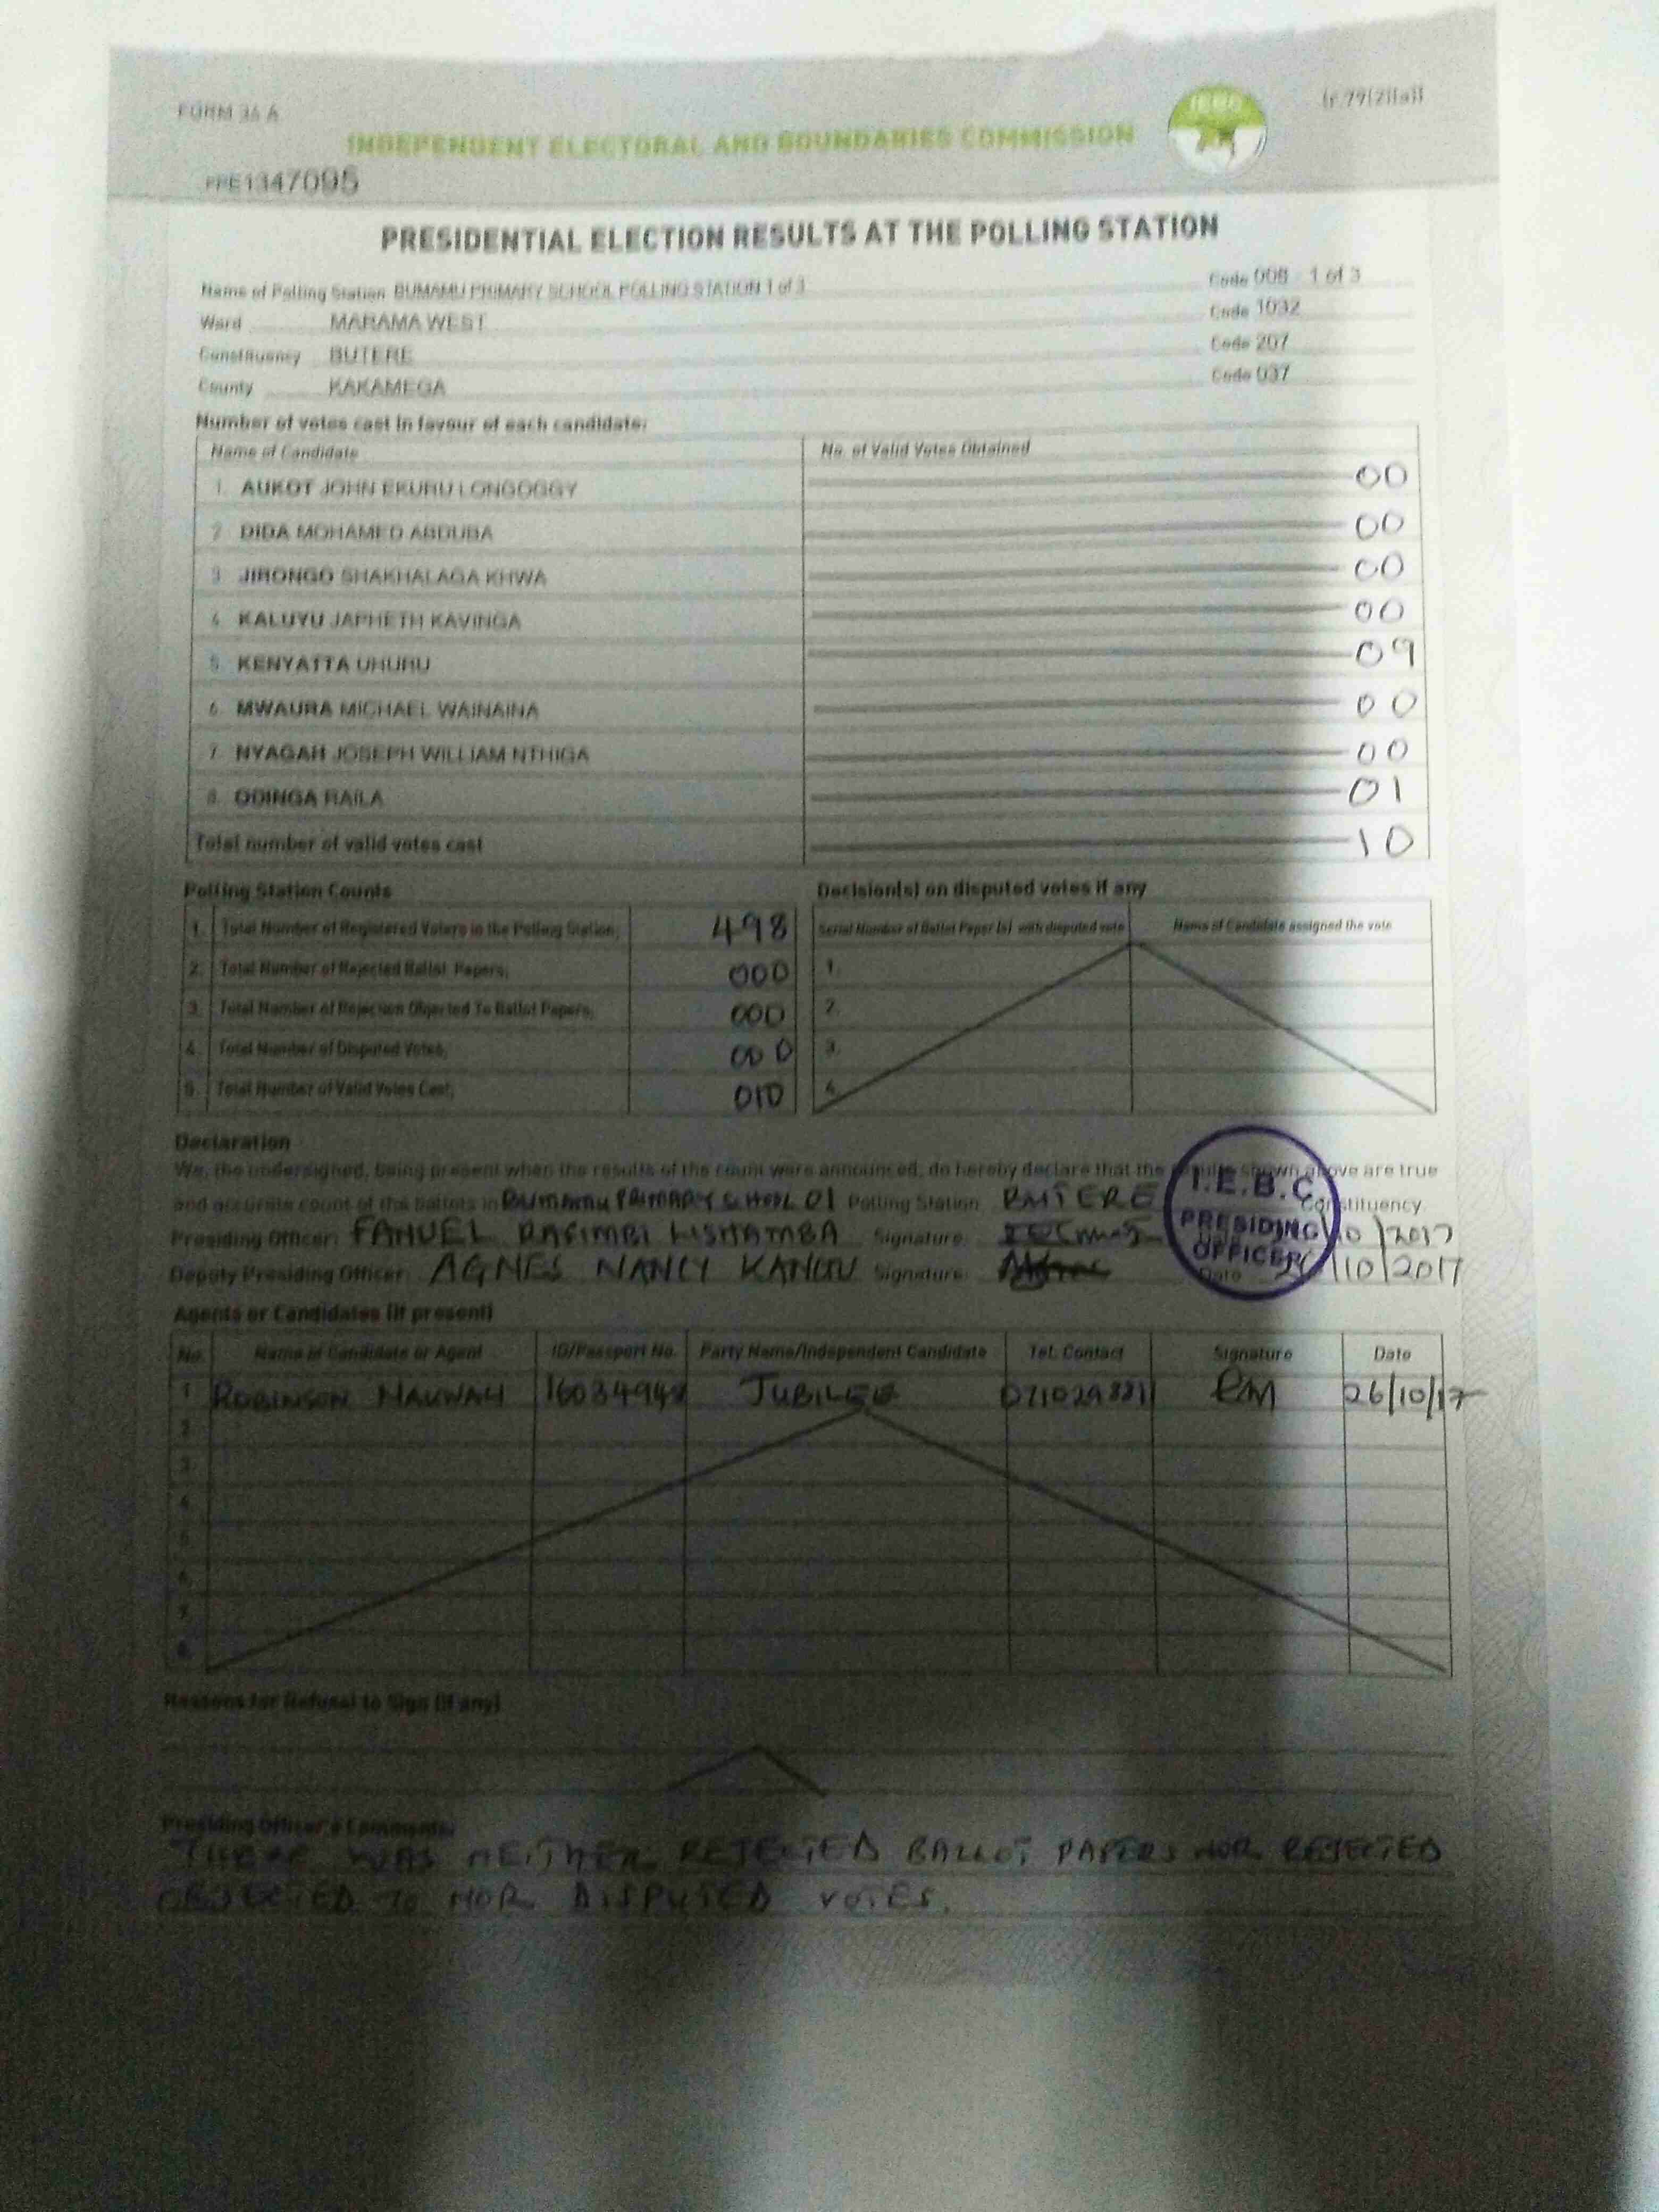 FORM 34 A
(r.79(2)(a))
INDEPENDENT ELECTORAL AND BOUNDARIES COMMISSION
IEBC
PPE1347095
PRESIDENTIAL ELECTION RESULTS AT THE POLLING STATION
Name of Polling Station BUMAMU PRIMARY SCHOOL POLLING STATION 1 of 3 Code 008 - 1 of 3
Ward MARAMA WEST Code 1032
Constituency BUTERE Code 207
County KAKAMEGA Code 037
Number of votes cast in favour of each candidate:
Name of Candidate No. of Valid Votes Obtained
1. AUKOT JOHN EKURU LONGOGGY 00
2. DIDA MOHAMED ABDUBA 00
3. JIRONGO SHAKHALAGA KHWA 00
4. KALUYU JAPHETH KAVINGA 00
5. KENYATTA UHURU 09
6. MWAURA MICHAEL WAINAINA 00
7. NYAGAH JOSEPH WILLIAM NTHIGA 00
8. ODINGA RAILA 01
Total number of valid votes cast 10
Polling Station Counts
1. Total Number of Registered Voters in the Polling Station; 498
2. Total Number of Rejected Ballot Papers; 000
3. Total Number of Rejection Objected To Ballot Papers; 000
4. Total Number of Disputed Votes; 000
5. Total Number of Valid Votes Cast; 010
Decision(s) on disputed votes if any
Serial Number of Ballot Paper (s) with disputed vote Name of Candidate assigned the vote
1.
2.
3.
4.
Declaration
We, the undersigned, being present when the results of the count were announced, do hereby declare that the results shown above are true
and accurate count of the ballots in BUMAMU PRIMARY SCHOOL 01 Polling Station BUTERE Constituency
Presiding Officer: FANUEL LISHAMBA Signature: 10/2017
Deputy Presiding Officer: AGNES NANCY Signature: Date 26/10/2017
I.E.B.C.
PRESIDING
OFFICER
Agents or Candidates (if present)
No. Name of Candidate or Agent ID/Passport No. Party Name/Independent Candidate Tel. Contact Signature Date
1 ROBINSON JUBILEE RM 26/10/17
2
3
4
5
6.
7.
8.
Reasons for Refusal to Sign (if any)
Presiding Officer's Comments:
THERE WAS NEITHER REJECTED BALLOT PAPERS NOR REJECTED
OBJECTED TO NOR DISPUTED VOTES.